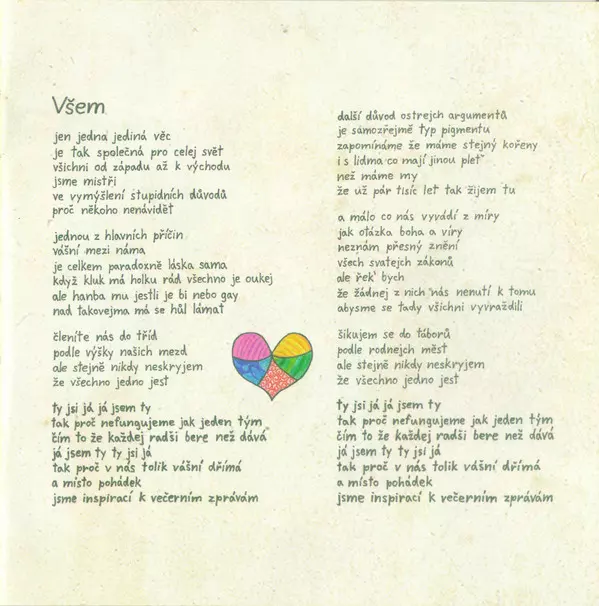 Všem
jen jedna jediná věc
je tak společná pro celej svět
všichni od západu až k východu
jsme mistři
ve vymýšlení stupidních důvodů
proč někoho nenávidět
jednou z hlavních příčin
vášní mezi náma
je celkem paradoxně láska sama
když kluk má holku rád všechno je oukej
ale hanba mu jestli je bi nebo gay
nad takovejma má se hůl lámat
členíte nás do tříd
podle výšky našich mezd
ale stejně nikdy neskryjem
že všechno jedno jest
ty jsi já já jsem ty
tak proč nefungujeme jak jeden tým
čím to že každej radši bere než dává
já jsem ty ty jsi já
tak proč v nás tolik vášní dřímá
a místo pohádek
jsme inspirací k večerním zprávám
další důvod ostrejch argumentů
je samozřejmě typ pigmentu
zapomínáme že máme stejný kořeny
i s lidma co mají jinou pleť
než máme my
že už pár tisíc let tak žijem tu
a málo co nás vyvádí z míry
jak otázka boha a víry
neznám přesný znění
všech svatejch zákonů
ale řek' bych
že žádnej z nich nás nenutí k tomu
abysme se tady všichni vyvraždili
šikujem se do táborů
podle rodnejch měst
ale stejně nikdy neskryjem
že všechno jedno jest
ty jsi já já jsem ty
tak proč nefungujeme jak jeden tým
čím to že každej radši bere než dává
já jsem ty ty jsi já
tak proč v nás tolik vášní dřímá
a místo pohádek
jsme inspirací k večerním zprávám